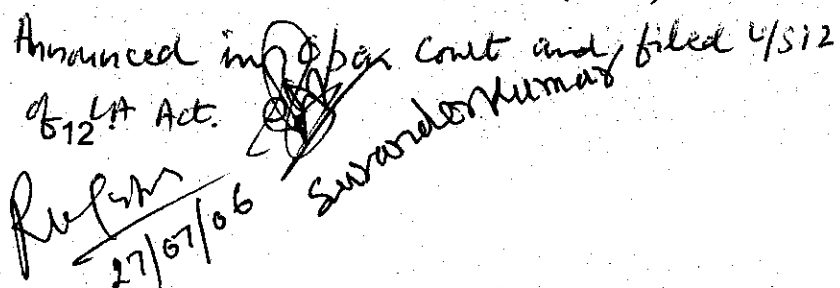 Announced in open court and filed u/s 12
of L.A Act.
12
Surander Kumar
27/07/06